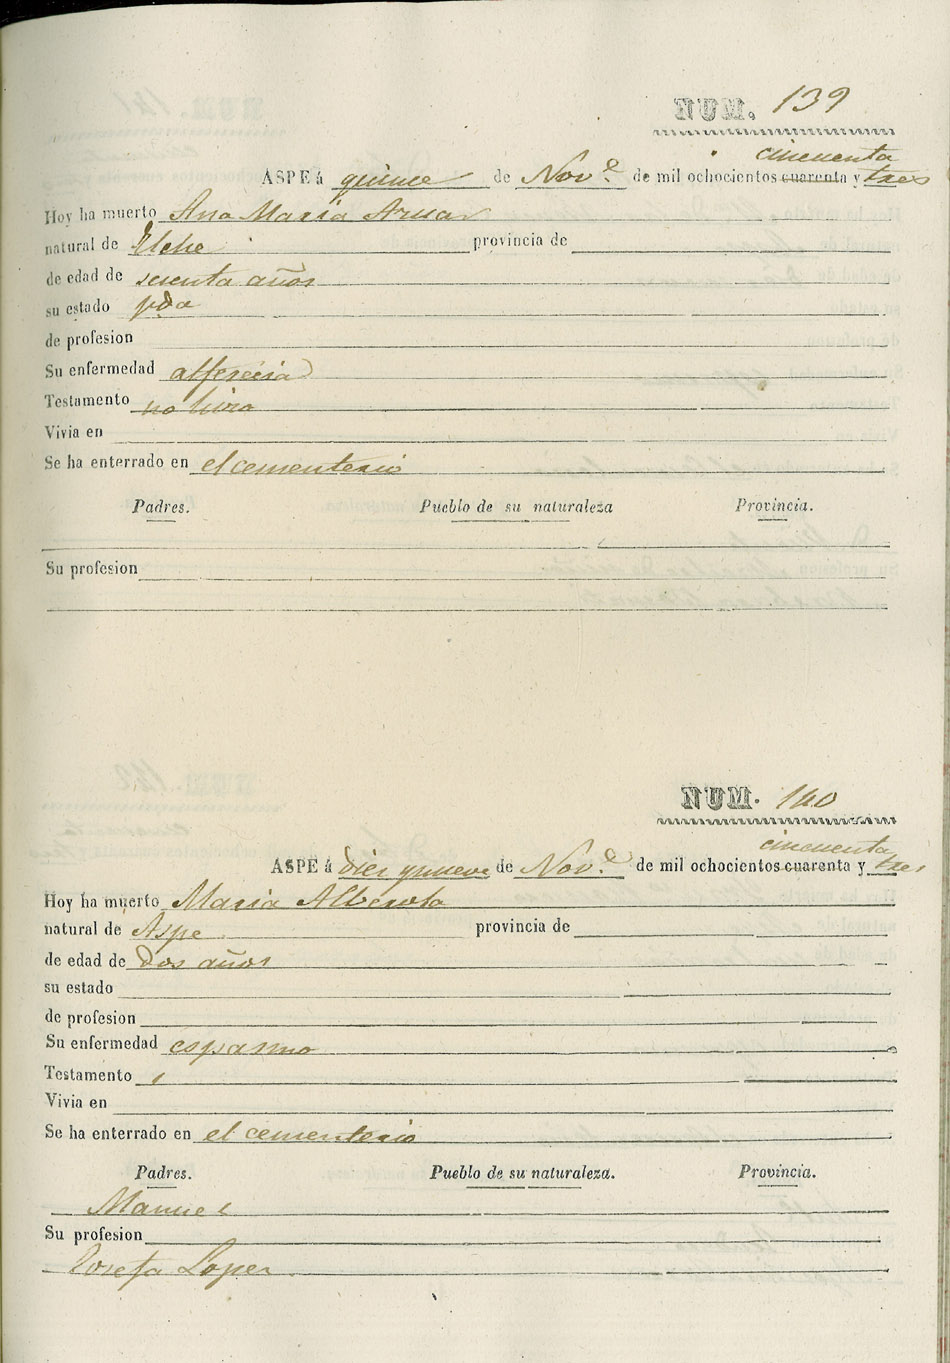 NUM. 139
cincuenta
ASPE á quince de Novᵉ de mil ochocientos cuarenta y tres
Hoy ha muerto Ana Maria Aznar
natural de Elche provincia de
de edad de
su estado vda
de profesion
Su enfermedad alferecia
Testamento no hizo
Vivia en
Se ha enterrado en el cementerio
Padres. Pueblo de su naturaleza Provincia.
Su profesion
NUM. 140
cincuenta
ASPE á diez y nueve de Novᵉ de mil ochocientos cuarenta y tres
Hoy ha muerto Maria Alberola
natural de Aspe provincia de
de edad de Dos años
su estado
de profesion
Su enfermedad espasmo
Testamento
Vivia en
Se ha enterrado en el cementerio
Padres. Pueblo de su naturaleza. Provincia.
Manuel
Su profesion
Josefa Lopez